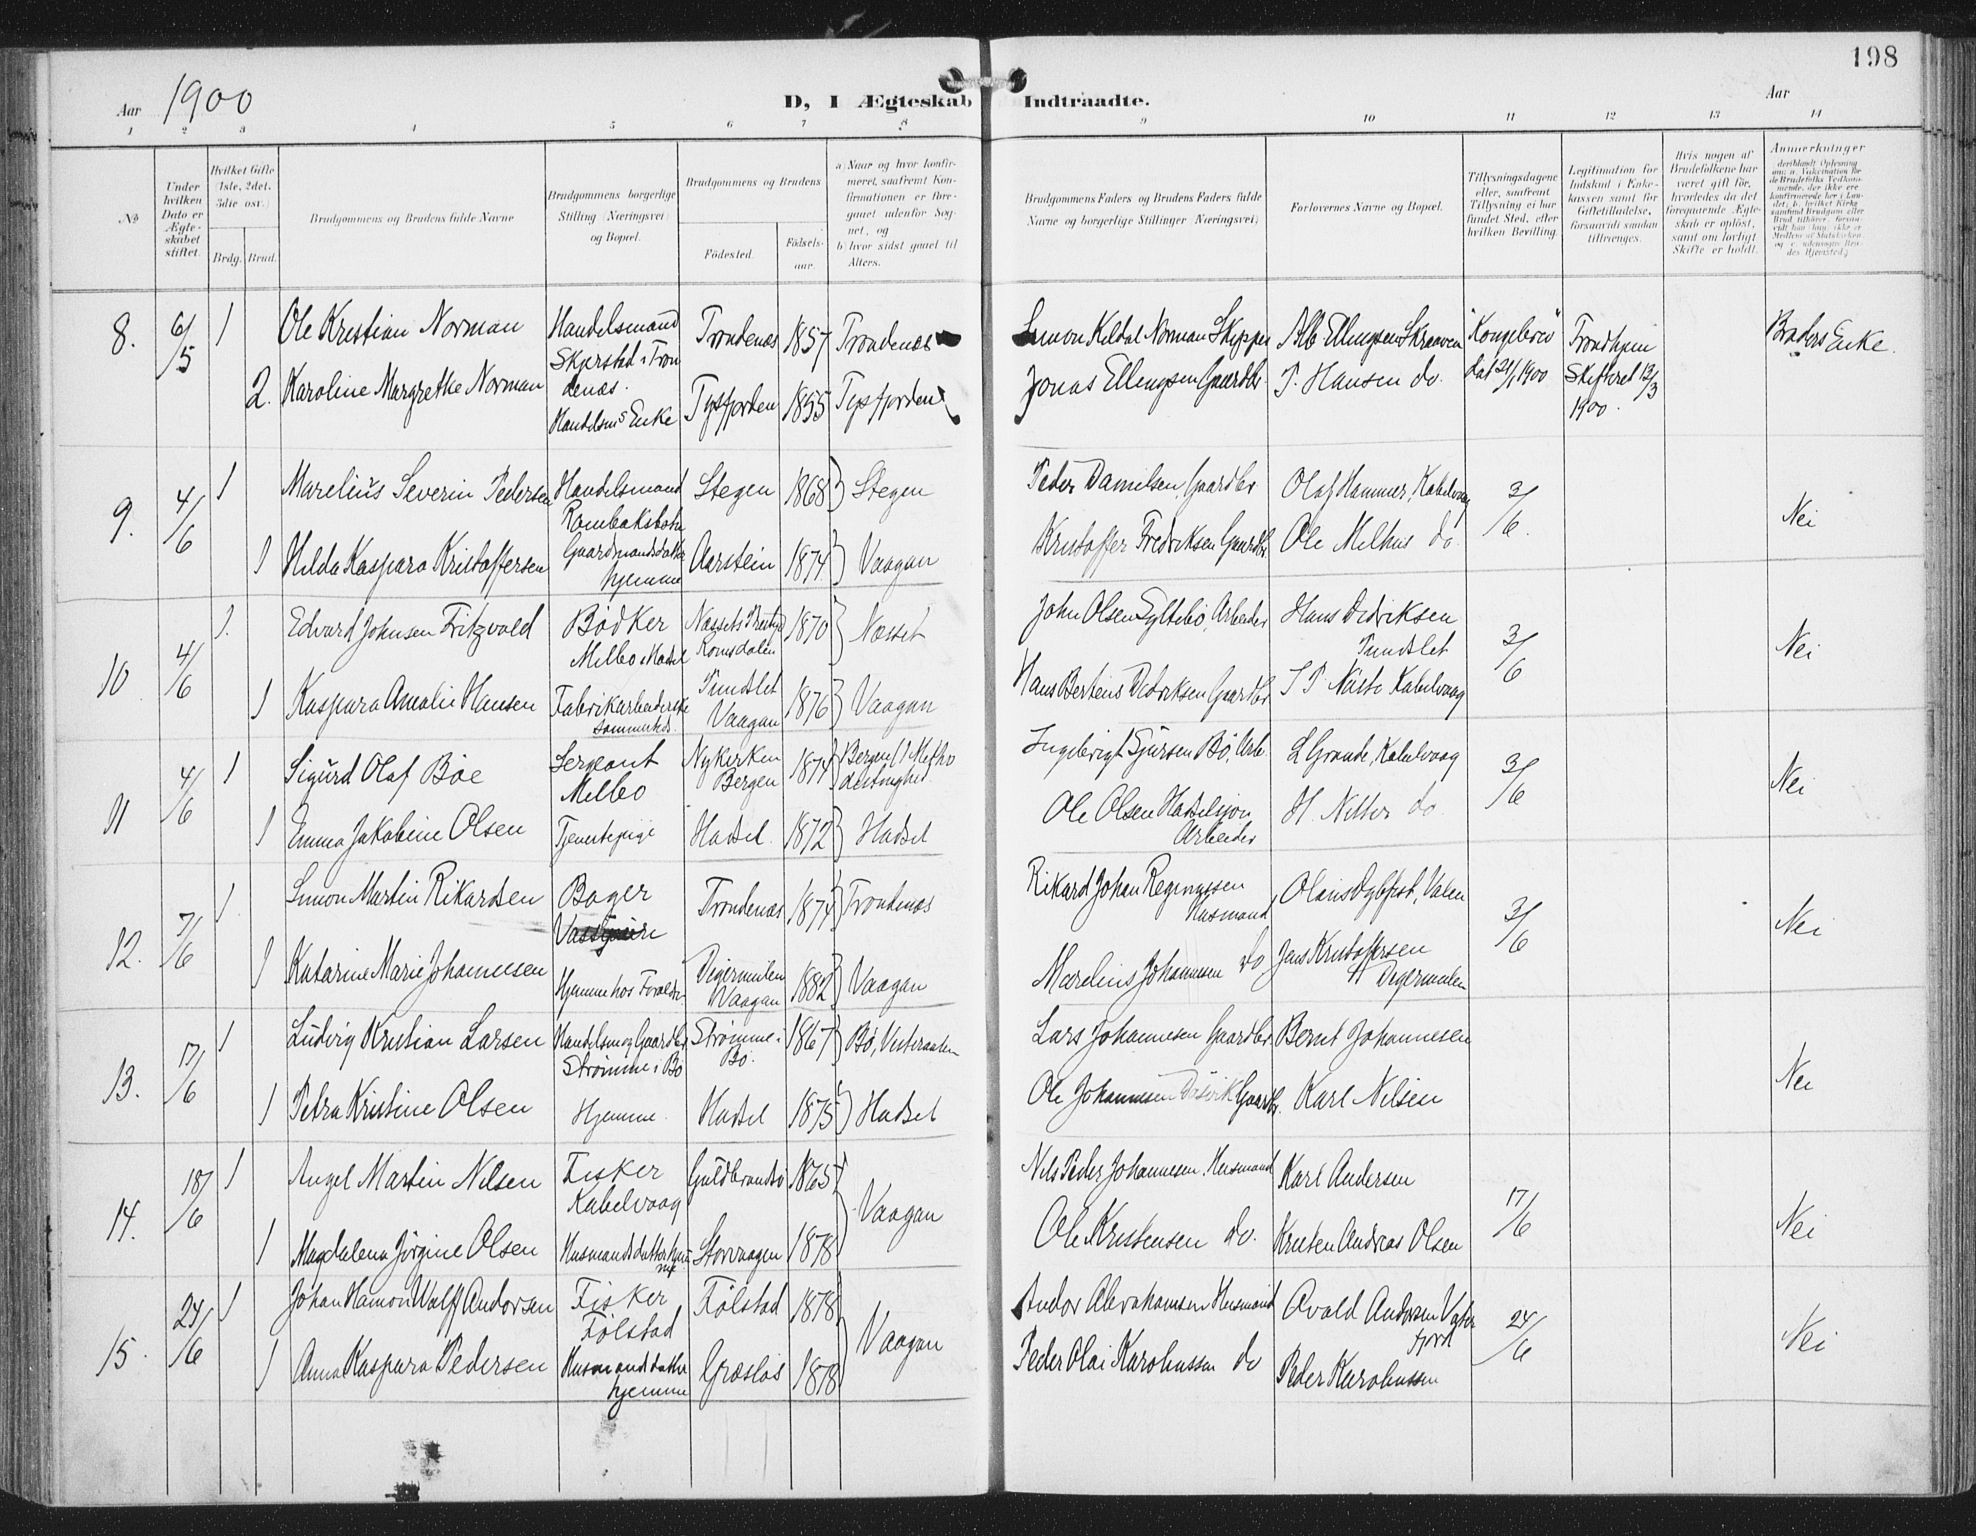 198
Aar 1900
D, I Ægteskab Indtraadte.
Aar
1 2 3 4 5 6 7 8 9 10 11 12 13 14
No
Under hvilken Dato er Ægteskabet stiftet.
Hvilket Gifte 1ste, 2det, 3die osv.)
Brdg. Brud.
Brudgommens og Brudens fulde Navne
Brudgommens borgerlige Stilling (Næringsvei) og Bopæl.
Brudgommens og Brudens
Fødested.
Fødselsaar.
a) Naar og hvor konfirmeret, saafremt Konfirmationen er foregaaet udenfor Sognet, og
b) hvor sidst gaaet til Alters.
Brudgommens Faders og Brudens Faders fulde Navne og borgerlige Stillinger (Næringsvei)
Forlovernes Navne og Bopæl.
Tillysningsdagene eller, saafremt Tillysning ei har fundet Sted, efter hvilken Bevilling.
Legitimation for Indskud i Enkekassen samt for Giftetilladelse, forsaavidt saadan tiltrænges.
Hvis nogen af Brudefolkene har været gift før, hvorledes da det foregaaende Ægteskab er opløst, samt om lovligt Skifte er holdt.
Anmerkninger
8. 6/5 1 Ole Kristian Norman Handelsmand Skjærstad i Trondenæs Trondenæs 1857 Trondenæs Simon Keldal Norman Skipper Alb Ellingsen Skraaven "Kongebrev" dat 21/1 1900 Trondhjem Skifteret 12/3 1900. Broders Enke.
2. Karoline Margrethe Norman Handelsms Enke Tysfjorden 1855 Tysfjorden Jonas Ellingsen Gaardbr. P. Hansen do.
9. 4/6 1 Marelius Severin Pedersen Handelsmand Rombaksbotn Stegen 1868 Stegen Peder Danielsen, Gaardbr Olaf Hammer, Kabelvaag 3/6. Nei
1 Hilda Kaspara Kristoffersen Gaardmandsdatter hjemme Aarstein 1874 Vaagan Kristoffer Fredriksen Gaardbr. Ole Melhus do.
10 4/6 1. Edvard Johnsen Fitzvold Bødker Melbo i Hadsel Næssets Romsdalen 1870 Næsset John Olsen Syltebø, Arbeider Hans Didriksen Tundslet 3/6 Nei
1 Kaspara Amalie Hansen Fabrikarbeiderske sammesteds. Tundslet Vaagan 1876 Vaagan Hans Bertens Didriksen Gaardbr. Kabelvaag
11 4/6 1 Sigurd Olaf Bøe Sergeant Melbo Nykirken Bergen 1874 Bergen (i Methodistmenighed Ingebrigt Sjursen Bø, Arb. L Grande, Kabelvaag 3/6 Nei
1 Emma Jakobine Olsen Tjenestepige Hadsel. 1872 Hadsel Ole Olsen Arbeider H. Nilter do.
12. 7/6 1 Simon Martin Rikardsen Bager Trondenæs 1874 Trondenæs Rikard Johan Husmand Olaus Valen 3/6 Nei
1 Katarine Marie Johannesen Hjemme hos Forældre Digermulen Vaagan 1882 Vaagan Marelius Johannesen do Jens Kristoffersen Digermulen
13. 17/6 1 Ludvig Kristian Larsen Handelsm og Gaardbr. Strømme i Bø Strømme i Bø. 1867 Bø, Vesteraalen Lars Johannesen Gaardbr. Bernt Johannesen Nei
1 Petra Kristine Olsen Hjemme. Hadsel 1875 Hadsel Ole Johannesen Gaardbr. Karl Nilsen
14. 18/6 1 Angel Martin Nilsen Fisker Kabelvaag Guldbrandsø 1865 Vaagan Nils Peder Johannesen, Husmand Karl Andersen 17/6 Nei
1 Magdalena Jørgine Olsen Husmandsdatter hjemme Storvaagen 1878 Ole Kristensen do. Kristen Andreas Olsen
15. 24/6 1 Johan Hamon Wulff Andorsen Fisker Følstad Følstad 1878 Vaagan Andor Abrahamsen Husmand Avold Andorsen Vaterfjord 24/6 Nei
1 Anna Kaspara Pedersen Husmandsdatter hjemme Græsløs 1878 Peder Olai Karoliussen do Peder Karoliussen